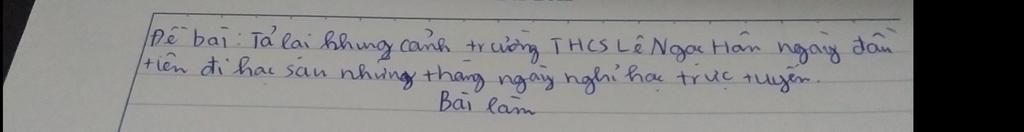 Đề bài: Tả lại khung cảnh trường THCS Lê Ngọc Hân ngày đầu
tiên đi học sau những tháng ngày nghỉ học trực tuyến.
Bài làm